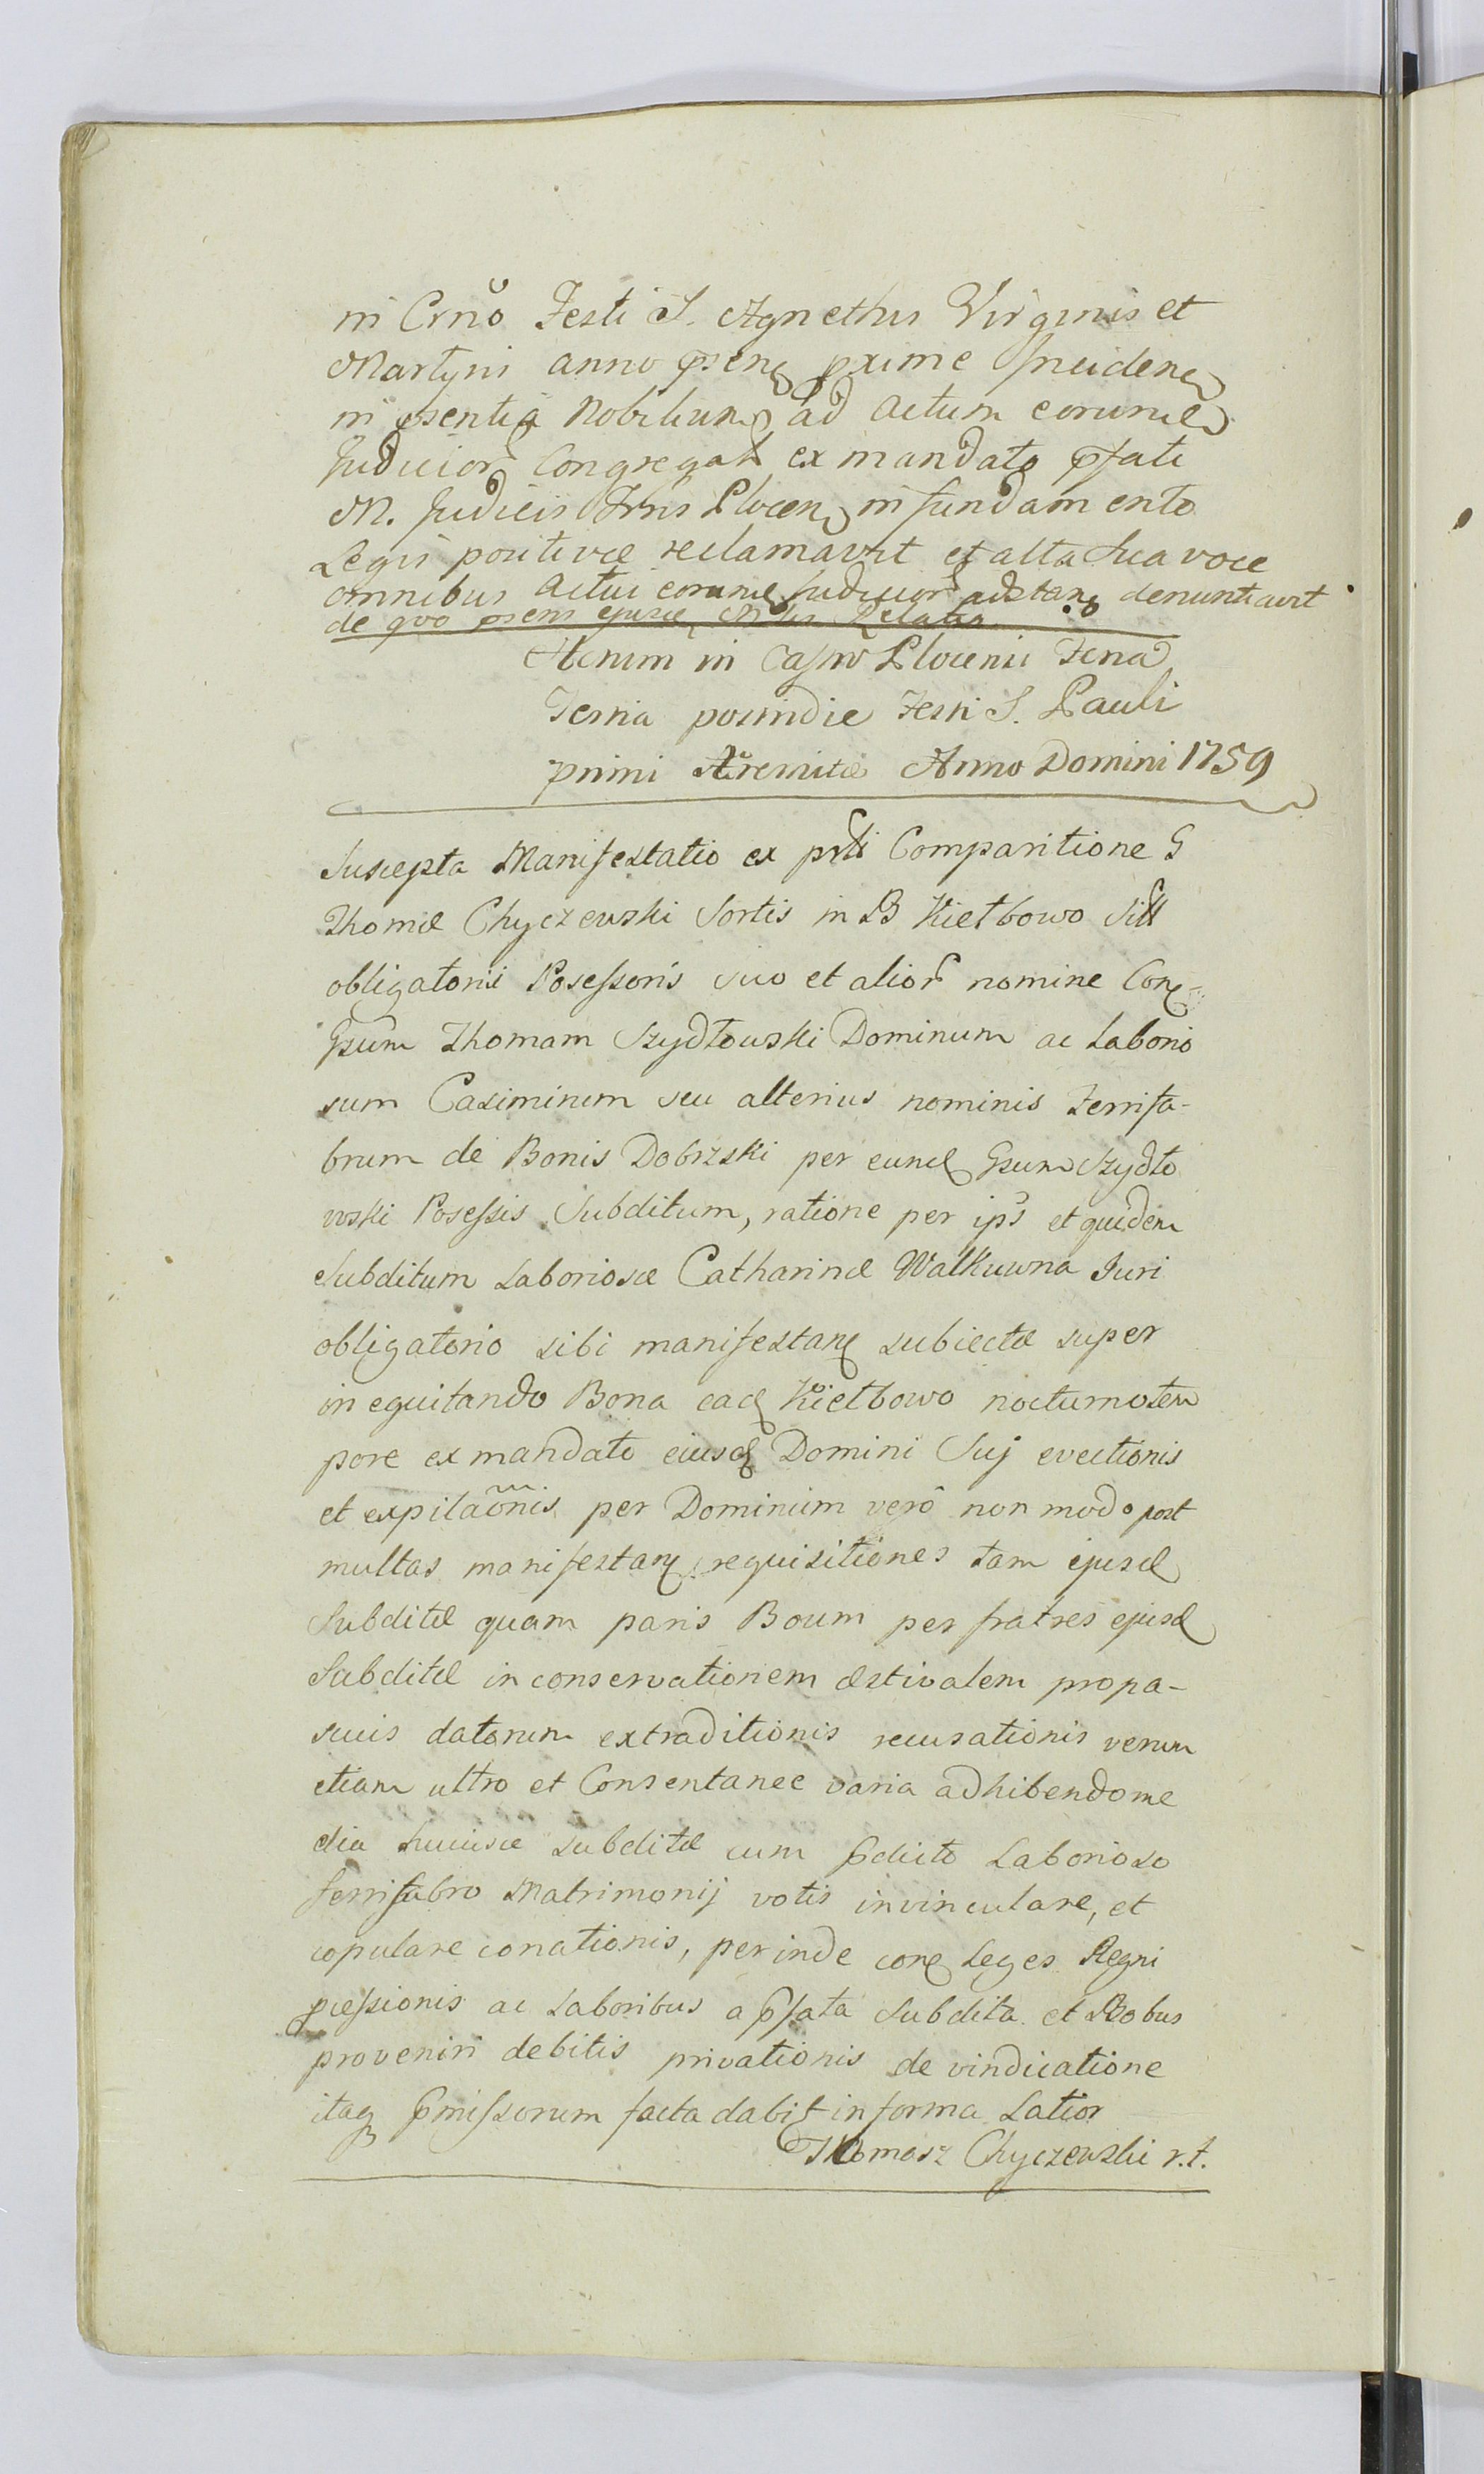 in Crnō Festi S. Agnethis Virginis et
Martyris anno psenꝫ pxime Incidenꝫ
in psentia Nobilium ad actum eorumd
Judicior Congregat ex mandato pfati
M. Judicis Plocen in fundamento
Legis positivæ reclamavit et alta sua voce
omnibus actui eorumd Judicior adstanꝫ denuntiavit
de quo psens ejusd Relatio
Actum in Castro Plocensi Feria
Tertia postridie Festi S. Pauli
primi Æremitæ Anno Domini 1759
Suscepta Manifestatio ex prti Comparitione G
Thomæ Chyczewski Sortis in B Kiełbowo
obligatorii Posessoris suo et alior nomine Conꝫ
Gsum Thomam Szydłowski Dominum ac Laborio
sum Casimirum seu alterius nominis Ferrifa-
brum de Bonis Dobrzski per eund Gsum Szydło
wski Posessis Subditum, ratione per ips et quidem
Subditum Laboriosæ Catharinæ Walkuwna Juri
obligatorio sibi manifestanꝫ subiectæ super
in equitando Bona ead Kiełbowo nocturno tem
pore ex mandato eiusd Domini Suj evectionis
et expilaōnis per Dominum verô non modo post
multas manifestanꝫ requisitiones tam ejusd
Subditæ quam paris Boum per fratres ejusd
Subditæ in conservationem æstivalem propa-
scuis datorum extraditionis recusationis verum
etiam ultro et Consentanee varia adhibendo me
dia hujusce Subditæ cum pdicto Laborioso
ferrifabro Matrimonij votis invinculare, et
copulare conationis, perinde conꝫ Leges Regni
pcessionis ac Laboribus a pfata Subdita et Bobus
proveniri debitis privationis de vindicatione
itaqꝫ pmissorum facta dabit in forma Latior
Thomasz Chyczewski r.t.